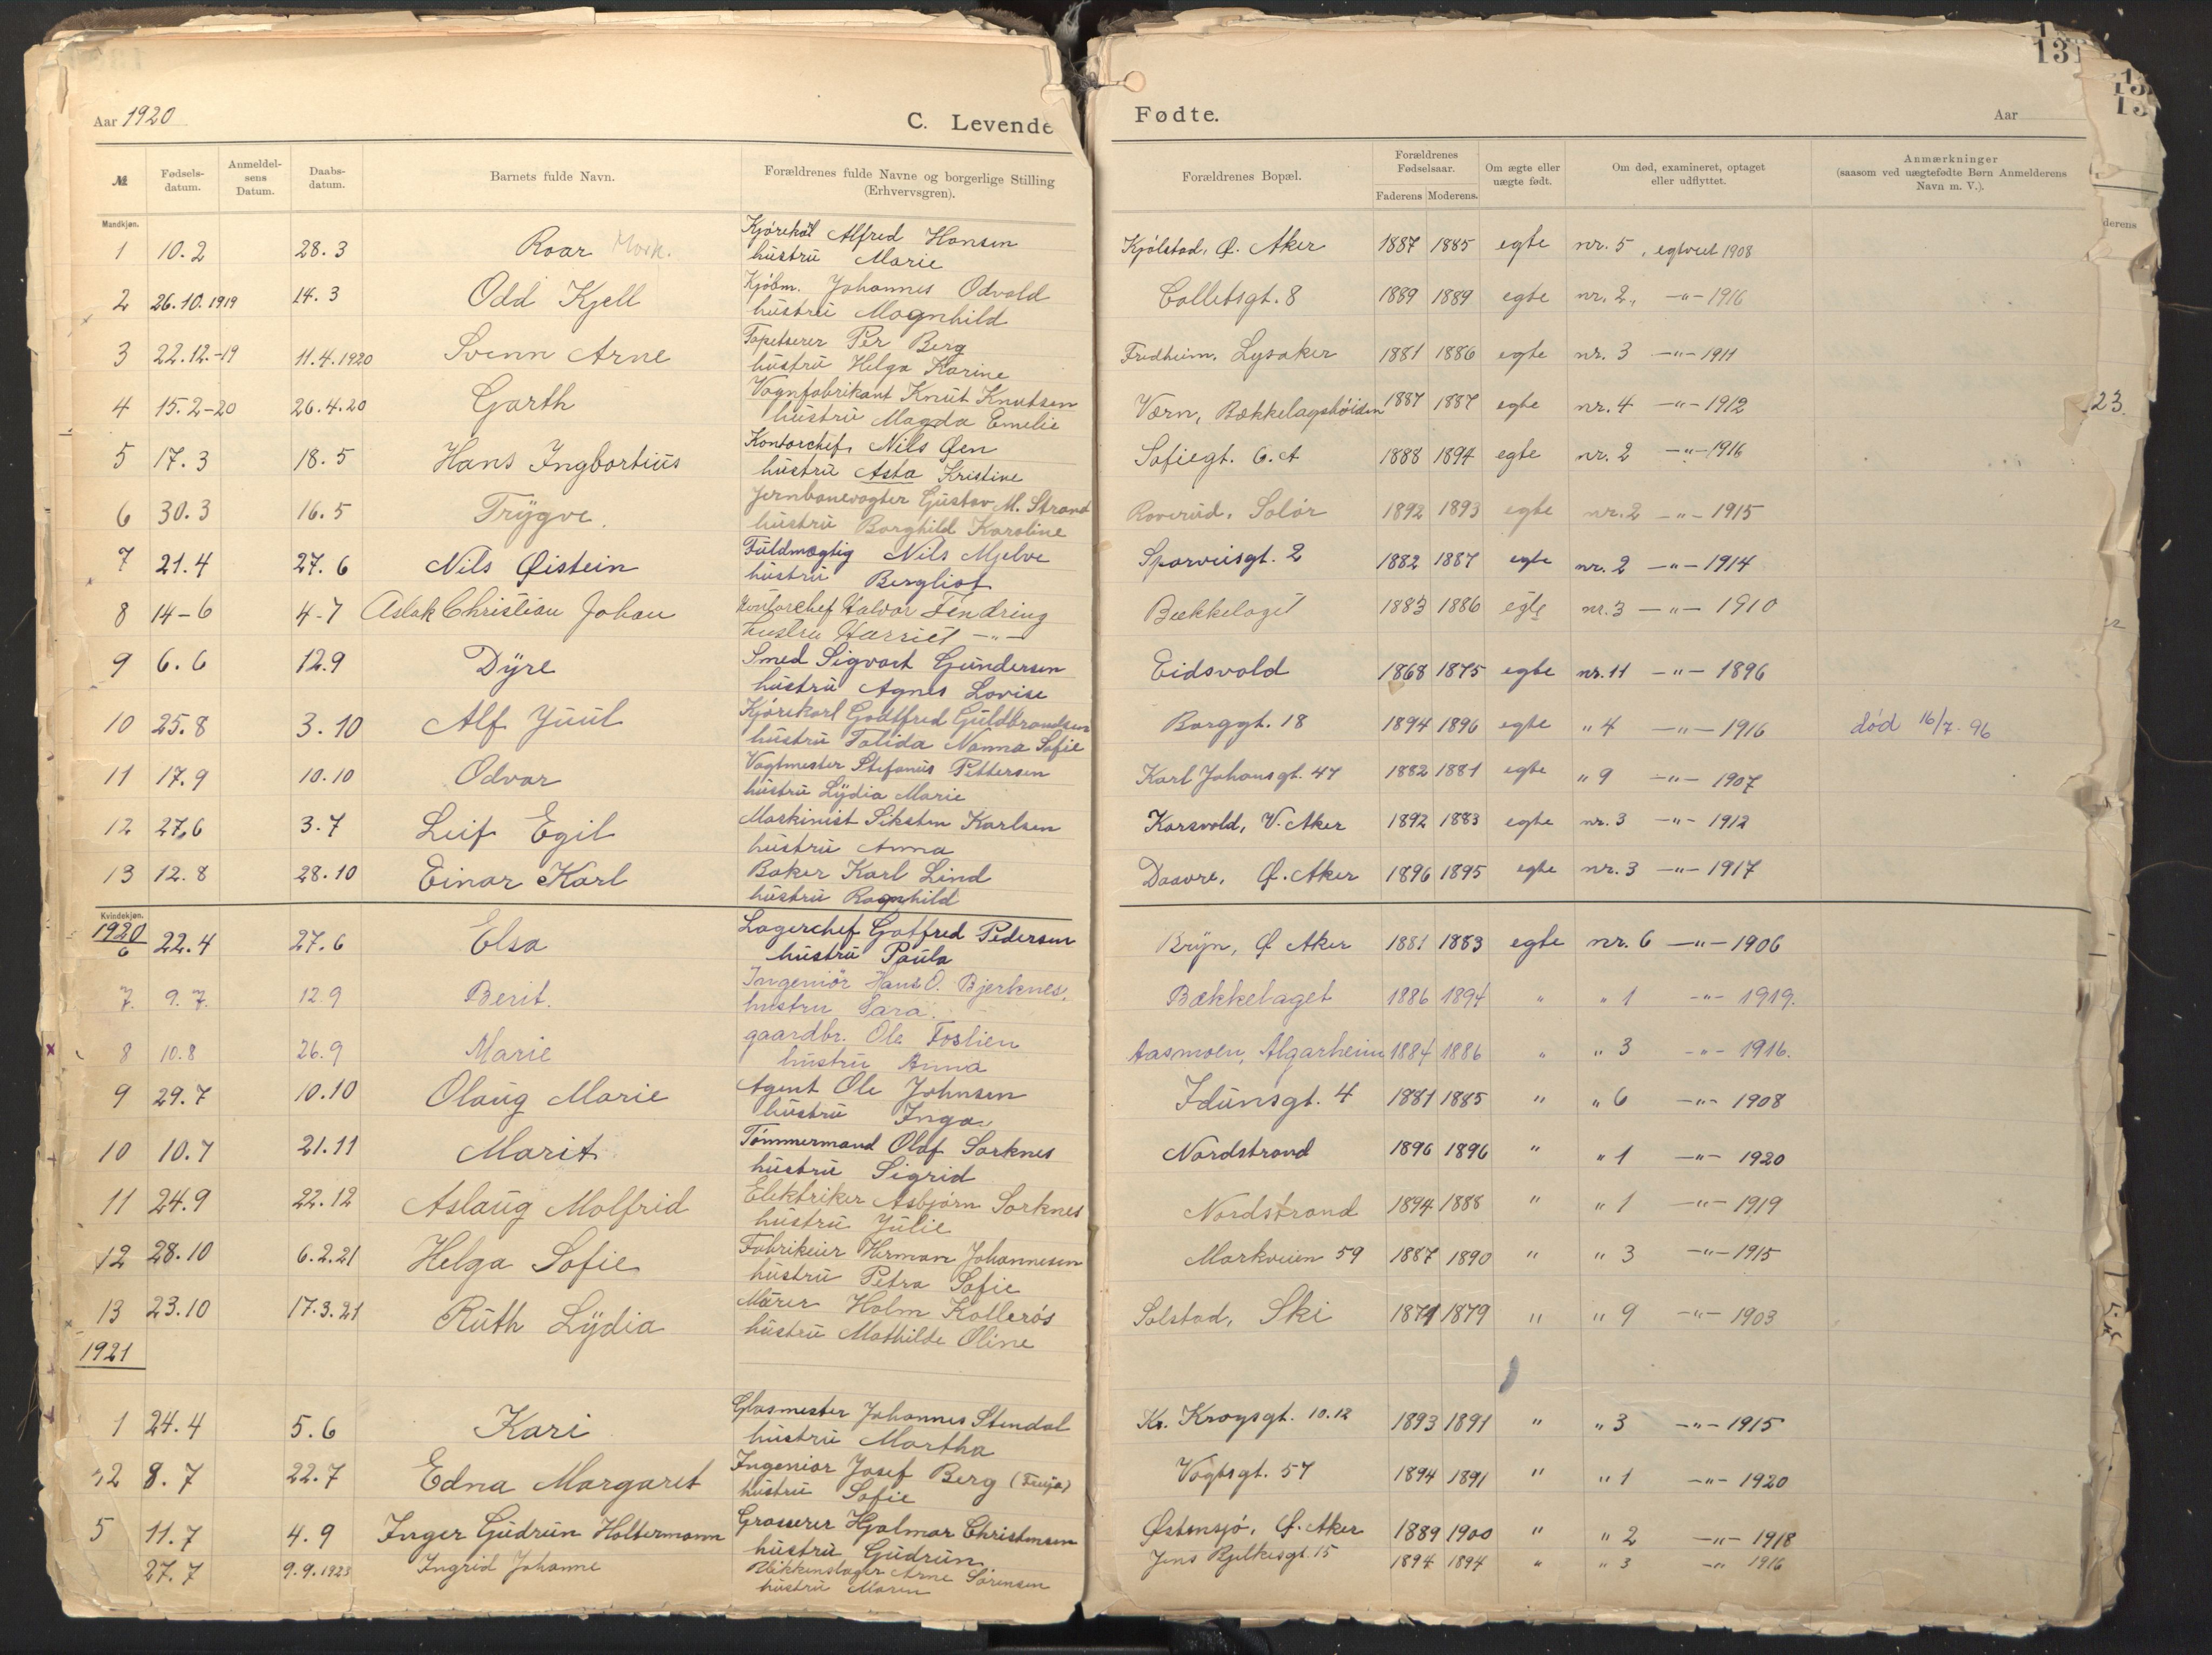 Aar 1920
C. Levende
Fødte.
Aar
131
№
Fødsels-datum.
Anmeldel-sens Datum.
Daabs-datum.
Barnets fulde Navn.
Forældrenes fulde Navne og borgerlige Stilling (Erhvervsgren).
Forældrenes Bopæl.
Forældrenes Fødselsaar.
Faderens Moderens.
Om ægte eller uægte født.
Om død, examineret, optaget eller udflyttet.
Anmærkninger (saasom ved uægtefødte Børn Anmelderens Navn m. V.).
Mandkjøn.
1 10.2 28.3 Roar Mork. Kjørekarl Alfred Hansen Kjölstad, Ø. Aker 1887 1885 egte nr. 5, egtviet 1908
hustru Marie
2 26.10.1919 14.3 Odd Kjell Kjöbm. Johannes Odvald Colletsgt. 8 1889 1889 egte nr. 2, -"- 1916
hustru Magnhild
3 22.12.-19 11.4.1920 Svenn Arne Tapetserer Per Berg Fredheim, Lysaker 1881 1886 egte nr. 3 -"- 1911
hustru Helga Karine
4 15.2-20 26.4.20 Garth Vognfabrikant Knut Knutsen Værn, Bækkelagshöiden 1887 1887 egte nr. 4 -"- 1912
hustru Magda Emelie
5 17.3 18.5 Hans Ingbortius Kontorchef Nils Øen Sofiegt. 6.A 1888 1894 egte nr. 2 -"- 1916
hustru Asta Kristine
6 30.3 16.5 Trygve. Jernbanevogter Gustav M. Strand Roverud, Solör 1892 1893 egte nr. 2 -"- 1915
hustru Borghild Karoline
7 21.4 27.6 Nils Øistein Fuldmægtig Nils Mjelve Sporveisgt. 2 1882 1887 egte nr. 2 -"- 1914
hustru Bergliot
8 14-6 4-7 Aslak Christian Johan Kontorchef Halvor Tendring Bækkelaget 1883 1886 egte nr. 3 -"- 1910
hustru Harriet -"-
9 6.6 12.9 Dyre Smed Sigvart Gundersen Eidsvold 1868 1875 egte nr. 11 -"- 1896
hustru Agnes Lovise
10 25.8 3.10 Alf Juul Kjørekarl Godtfred Guldbrandsen Borggt. 18 1894 1896 egte " 4 -"- 1916 død 16/7-96
hustru Tolida Nanna Sofie
11 17.9 10.10 Odvar Vagtmester Stefanus Pettersen Karl Johansgt. 47 1882 1881 egte " 9 -"- 1907
hustru Lydia Marie
12 27.6 3.7 Leif Egil Maskinist Siksten Karlsen Korsvold, V. Aker 1892 1883 egte nr. 3 -"- 1912
hustru Anna
13 12.8 28.10 Einar Karl Baker Karl Lind Daavre, Ø. Aker 1896 1895 egte nr. 3 -"- 1917
hustru Ragnhild
Kvindekjøn.
1920
6 22.4 27.6 Elsa Lagerchef Gotfred Pedersen Bryn, Ø Aker 1881 1883 egte nr. 6 -"- 1906
hustru Paula
7. 9.7. 12.9 Berit. Ingeniör Hans O. Bjerknes, Bækkelaget 1886 1894 " " 1 -"- 1919.
hustru Sara.
8 10.8 26.9 Marie gaardbr. Ole Foslien Aasmoen, Algarheim 1884 1886 " " 3 -"- 1916.
hustru Anna
9 29.7 10.10 Olaug Marie Agent Ole Johnsen Idunsgt. 4 1881 1885 " " 6 -"- 1908
hustru Inga
10 10.7 21.11 Marit Tömmermand Olaf Sorknes Nordstrand 1896 1896 " " 1 -"- 1920
hustru Sigrid
11 24.9 22.12 Aslaug Molfrid Elektriker Asbjørn Sorknes Nordstrand 1894 1888 " " 1 -"- 1919
hustru Julie
12 28.10 6.2.21 Helga Sofie Fabrikeier Herman Johannesen Markveien 59 1887 1890 " " 3 -"- 1915
hustru Petra Sofie
13 23.10 17.3.21 Ruth Lydia Murer Holm Kollerös Solstad, Ski 1874 1879 " " 9 -"- 1903
hustru Mathilde Oline
1921
1 24.4 5.6 Kari Glasmester Johannes Stendal Kr. Krogsgt. 10.12 1893 1891 " " 3 -"- 1915
hustru Martha
2 8.7 22.7 Edna Margaret Ingeniør Josef Berg (Freija) Vogtsgt. 57 1894 1891 " " 1 -"- 1920
hustru Sofie
5 11.7 4.9 Inger Gudrun Holtermann Grosserer Hjalmar Christensen Østensjö, Ø. Aker 1889 1900 " " 2 -"- 1918
hustru Gudrun
27.7 9.9.1923 Ingrid Johanne Blikkenslager Arne Sörensen Jens Bjelkesgt. 15 1894 1894 " " 3 -"- 1916
hustru Maren